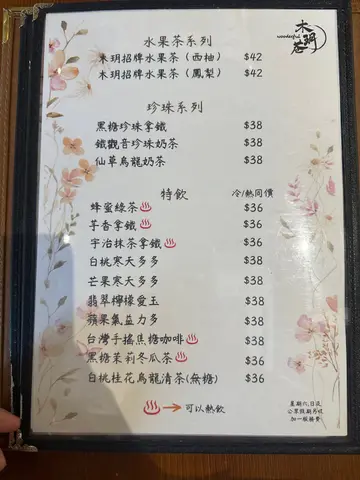 木玥茗
wonderful
水果茶系列
木玥招牌水果茶(西柚) $42
木玥招牌水果茶(鳳梨) $42
珍珠系列
黑糖珍珠拿鐵 $38
鐵觀音珍珠奶茶 $38
仙草烏龍奶茶 $38
特飲 冷/熱同價
蜂蜜綠茶 $36
芋香拿鐵 $36
宇治抹茶拿鐵 $36
白桃寒天多多 $38
芒果寒天多多 $38
翡翠檸檬愛玉 $38
蘋果氣益力多 $38
台灣手搖焦糖咖啡 $38
黑糖茉莉冬瓜茶 $36
白桃桂花烏龍清茶(無糖) $36
可以熱飲
星期六,日及
公眾假期另收
加一服務費